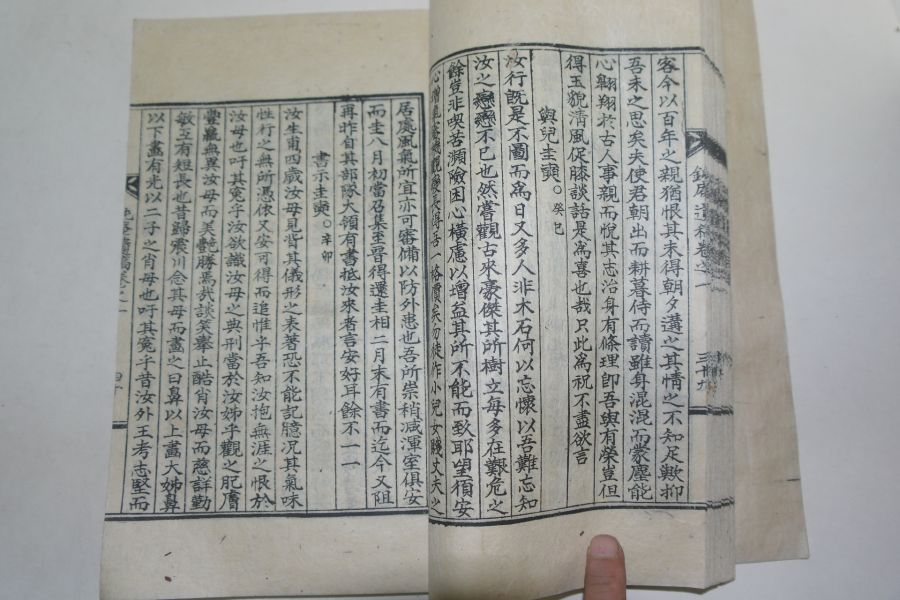 客今以百年之親猶恨其未得朝夕遘之其情之不知足歟抑
吾未之思矣夫使君朝出而耕暮侍而讀雖身混混而蒙塵能
心翱翔於古人事親而悅其志治身有條理卽吾與有榮豈但
得玉貌淸風促膝談詁是爲喜也哉只此爲祝不盡欲言
與兒圭奭 癸巳
汝行旣是不圖而爲日又多人非木石何以忘懷以吾難忘知
汝之戀戀不已也然嘗觀古來豪傑其所樹立每多在艱危之
餘豈非喫苦瀕險困心橫慮以增益其所不能而致耶望須安
心增氣 得吾一格價矣勿徒作小兒女賤丈夫之
居處風氣所宜亦可審備以防外患也吾所祟稍減渾室俱安
而圭八月初當召集至晉得還圭相二月末有書而迄今又阻
再昨自其部隊大領有書抵汝來者言安好耳餘不一一
書示圭奭 辛卯
汝生甫四歲汝母見背其儀形之表著恐不能記臆况其氣味
性行之無所憑依又安可得而追惟乎吾知汝抱無涯之恨於
汝母也吁其寃乎汝欲識汝母之典刑當於汝姊乎觀之肥膚
豊纖無異汝母而美艶勝焉哉談笑擧止酷肖汝母而慈詳勤
敏互有短長也昔歸震川念其母而畵之曰鼻以上畵大姊鼻
以下畵有光以二子之肖母也吁其寃乎昔汝外王考志堅而
遺稿卷之一
三十九
卷之一
四十